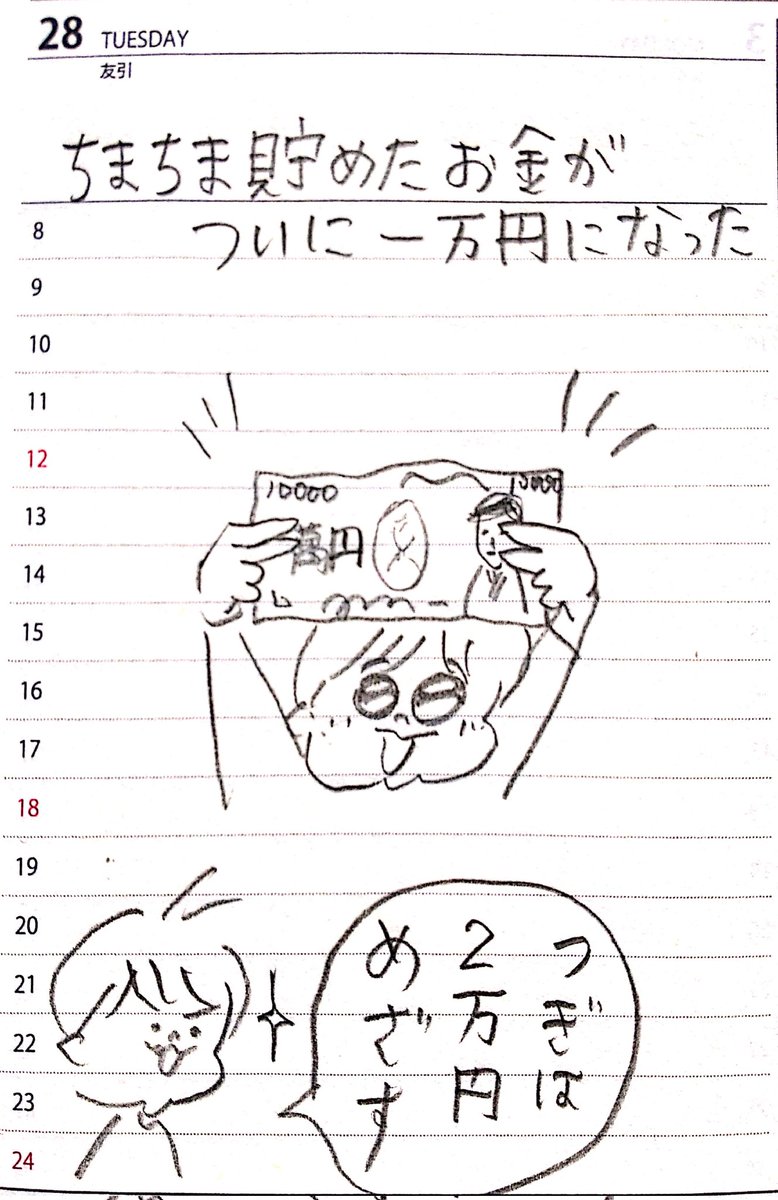 28 TUESDAY
友引
ちまちま貯めたお金が
ついに一万円になった
8
9
10
11
12
13
14
15
16
17
18
19
20
21
22
23
24
10000
10000
萬円
つぎは
2万円
めざす